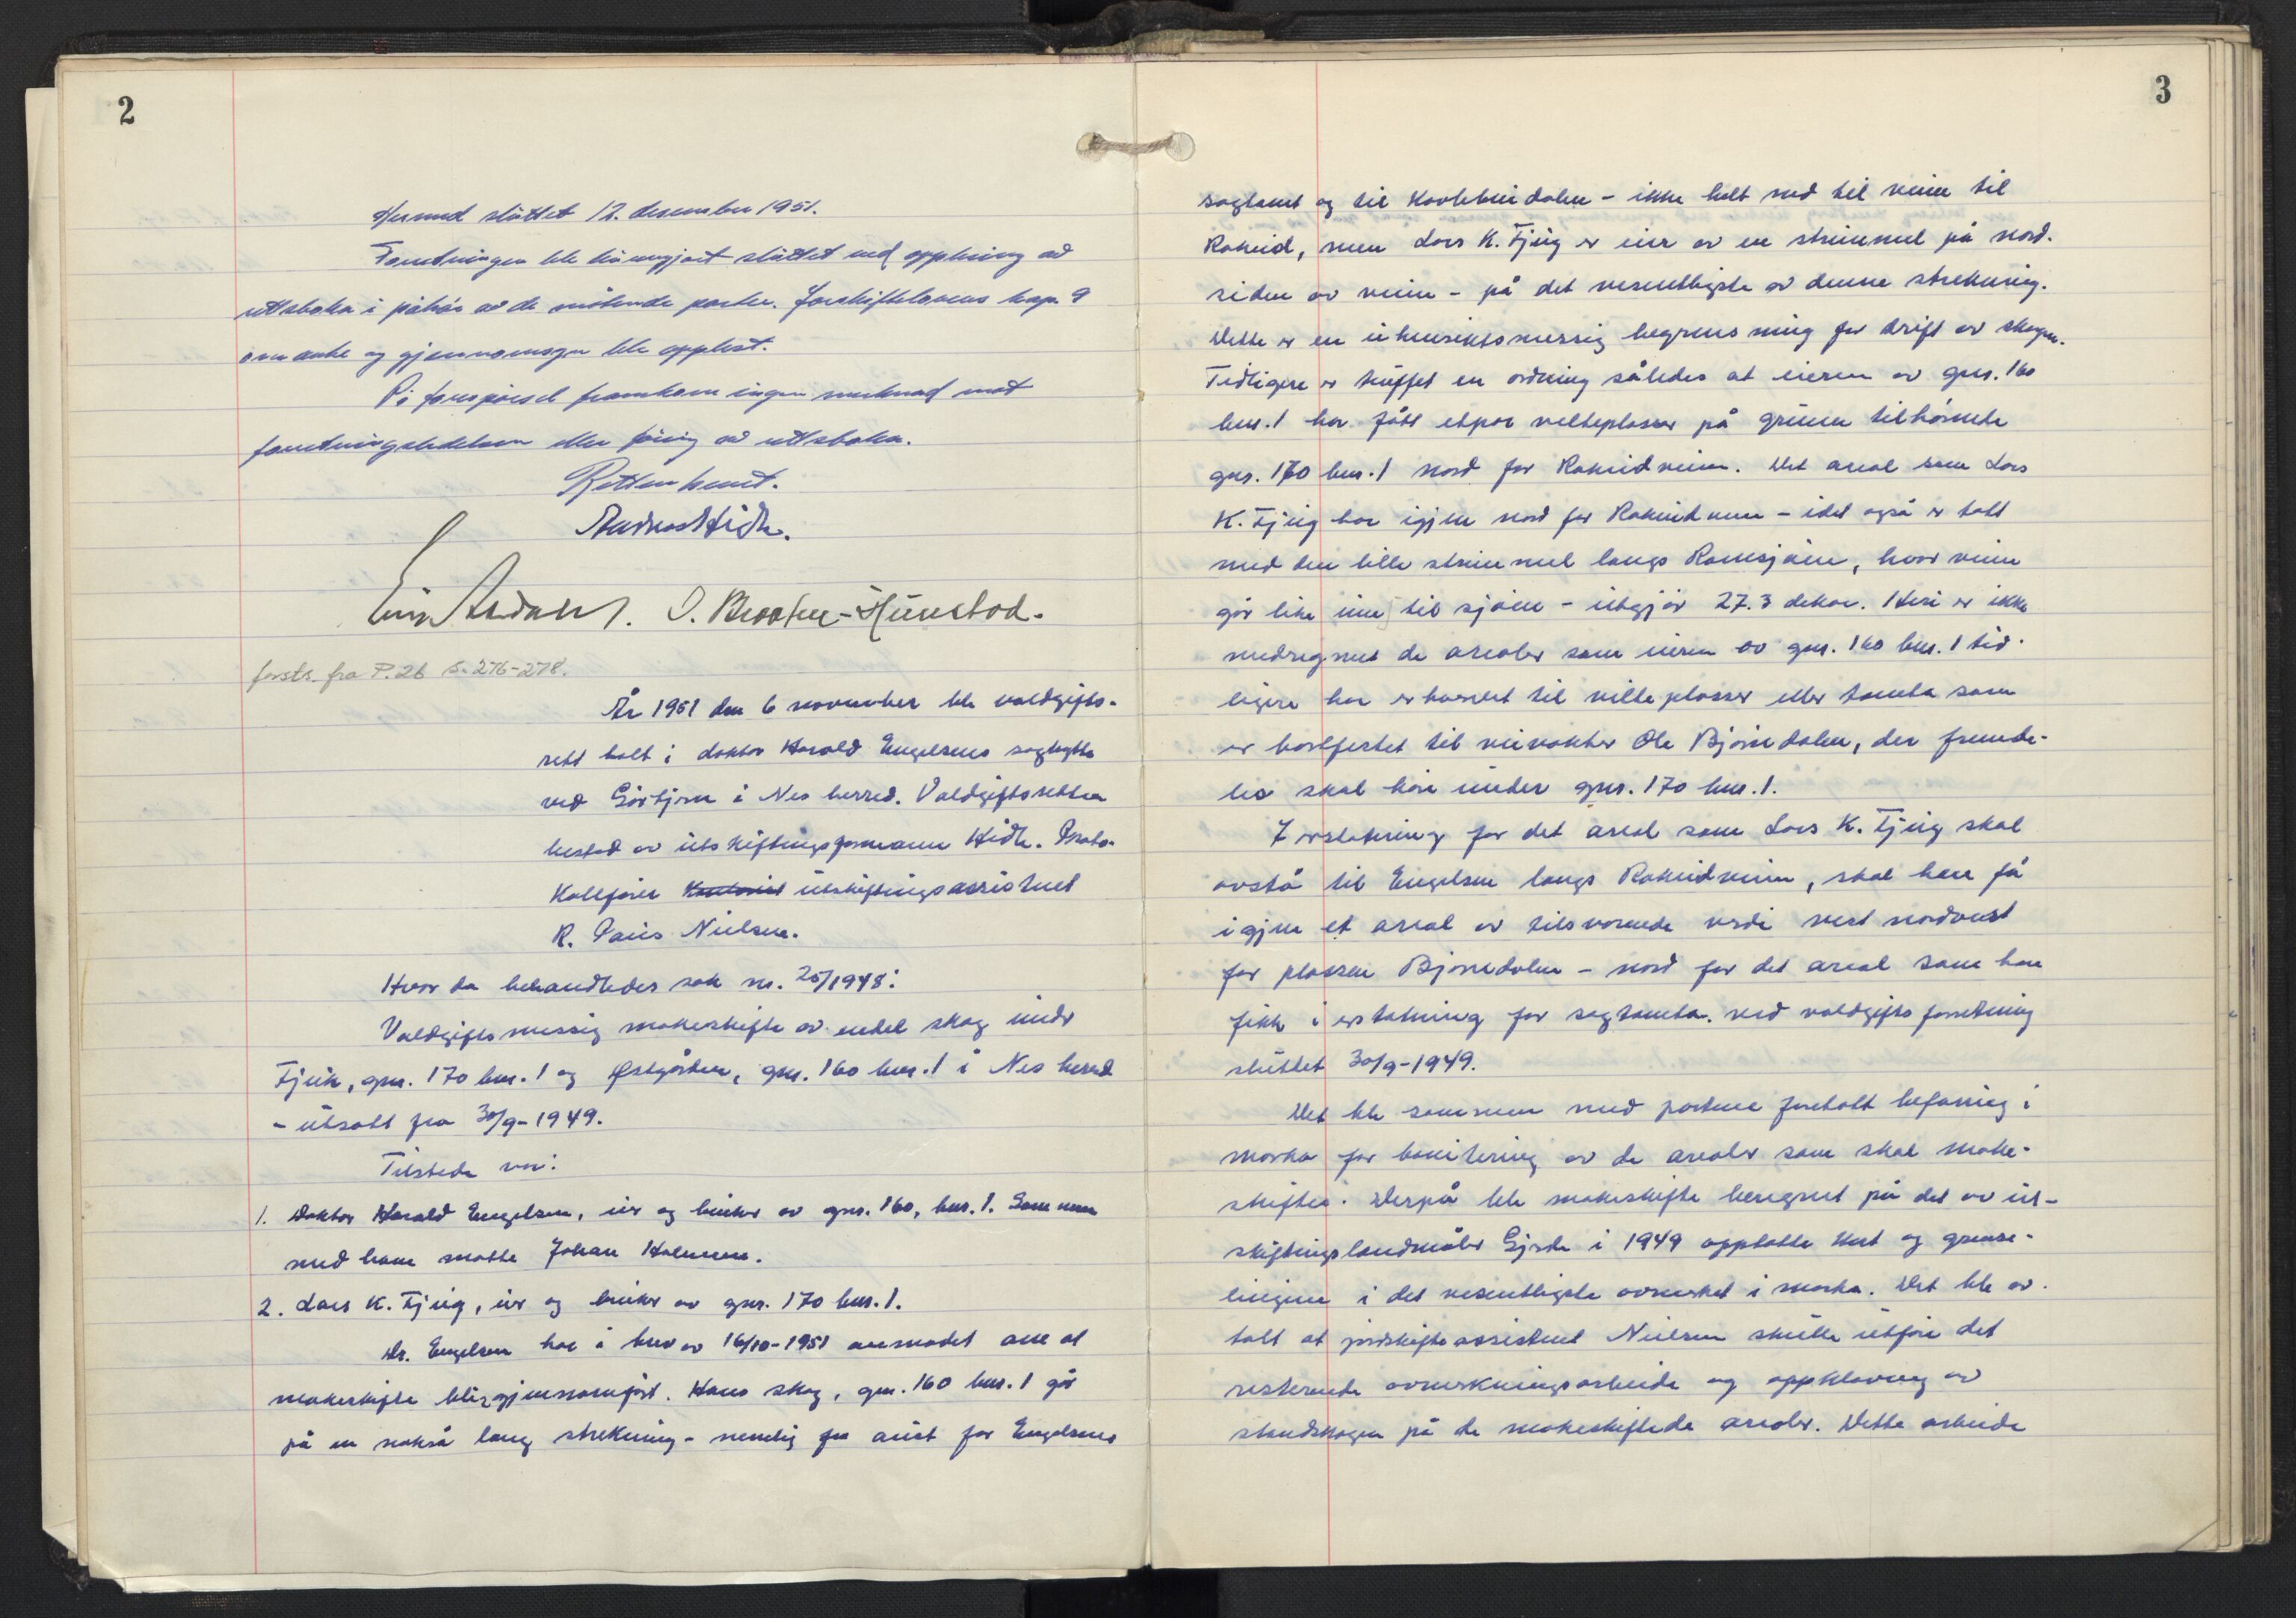 2
Hermed sluttet 12. desember 1951.
Forretningen ble kunngjort sluttet ved opplesing av
rettsboka i påhør av de møtende parter. Jordskiftelovens kap. 9
om anke og gjennomsyn ble opplest.
På forespørsel framkom ingen merknad mot
forretningsledelsen eller føring av rettsboka.
Retten hevet.
Andreas Hidle.
O. Braaten-Hunstad.
forts. fra P. 26 s. 276-278.
År 1951 den 6 november ble voldgifts-
rett holt i doktor Harald Engelsens saghytte
ved Gørtjern i Nes herred. Voldgiftsretten
bestod av utskiftningsformann Hidle. Proto-
kollfører utskiftningsassistent
R. Paus Nielsen.
Hvor da behandledes sak nr. 25/1948:
Voldgiftsmessig makeskifte av endel skog under
Fjuk, gnr. 170 bnr. 1 og Østgården, gnr. 160 bnr. 1 i Nes herred
- utsatt fra 30/9-1949.
Tilstede var:
1. Doktor Harald Engelsen, eier og bruker av gnr. 160, bnr. 1. Sammen
med ham møtte Johan Holmen.
2. Lars K. Fjug, eier og bruker av gnr. 170 bnr. 1.
Dr. Engelsen har i brev av 16/10-1951 anmodet om at
makeskifte blir gjennomført. Hans skog, gnr. 160 bnr. 1 går
på en nokså lang strekning - nemlig fra aust for Engelsens
3
sagtomt og til - ikke helt ned til veien til
Rømeid, men Lars K. Fjug er eier av en strimmel på nord-
siden av veien - på det vesentligste av denne strekning.
Dette er en uhensiktsmessig begrensning for drift av skogen.
Tidligere er truffet en ordning således at eieren av gnr. 160
bnr. 1 har fått etpar velteplasser på grunn tilhørende
gnr. 170 bnr. 1 nord for Rømeidveien. Det areal som Lars
K. Fjug har igjen nord for Rømeidveien - idet også er tatt
med den lille strimmel langs Rømsjøen, hvor veien
går like inn til sjøen - utgjør 27.3 dekar. Heri er ikke
medregnet de arealer som eieren av gnr. 160 bnr. 1 tid-
ligere har ervervet til velteplasser eller tomta som
er bortfestet til veivokter Ole Bjørndalen, der fremde-
les skal høre under gnr. 170 bnr. 1.
I erstatning for det areal som Lars K. Fjug skal
avstå til Engelsen langs Rømeidveien, skal han få
igjen et areal av tilsvarende verdi vest nordvest
for plassen Bjørndalen - nord for det areal som han
fikk i erstatning for sagtomta ved voldgiftsforretning
sluttet 30/9-1949.
Det ble sammen med partene foretatt befaring i
marka for bonitering av de arealer som skal make-
skiftes. Derpå ble makeskifte beregnet på det av ut-
skiftningslandmåler Gjerde i 1949 opptatte kart og grense-
linjene i det vesentligste avmerket i marka. Det ble av-
talt at jordskifteassistent Nielsen skulle utføre det
resterende avmerkningsarbeide og oppklaving av
standskogen på de makeskiftede arealer. Dette arbeide